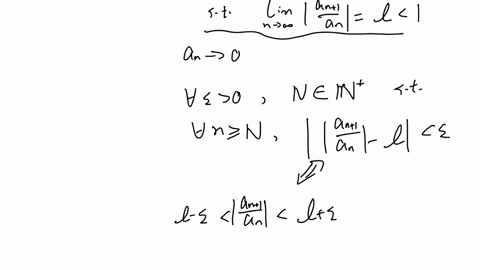 s.t. lim n→∞ |aₙ₊₁/aₙ| = l < 1
aₙ → 0
∀ ε > 0 , N ∈ ℕ⁺ s.t.
∀ n ≥ N, | |aₙ₊₁/aₙ| - l | < ε
l-ε < |aₙ₊₁/aₙ| < l+ε